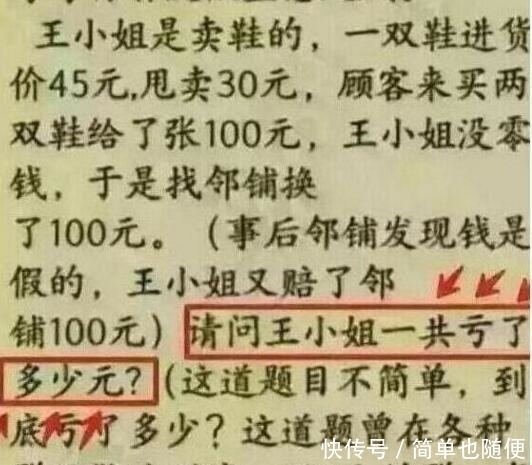 王小姐是卖鞋的，一双鞋进货
价45元,甩卖30元，顾客来买两
双鞋给了张100元，王小姐没零
钱，于是找邻铺换
了100元。（事后邻铺发现钱是
假的，王小姐又赔了邻
铺100元）请问王小姐一共亏了
多少元?（这道题目不简单，到
底亏了多少？这道题曾在各种
快传号／简单也随便